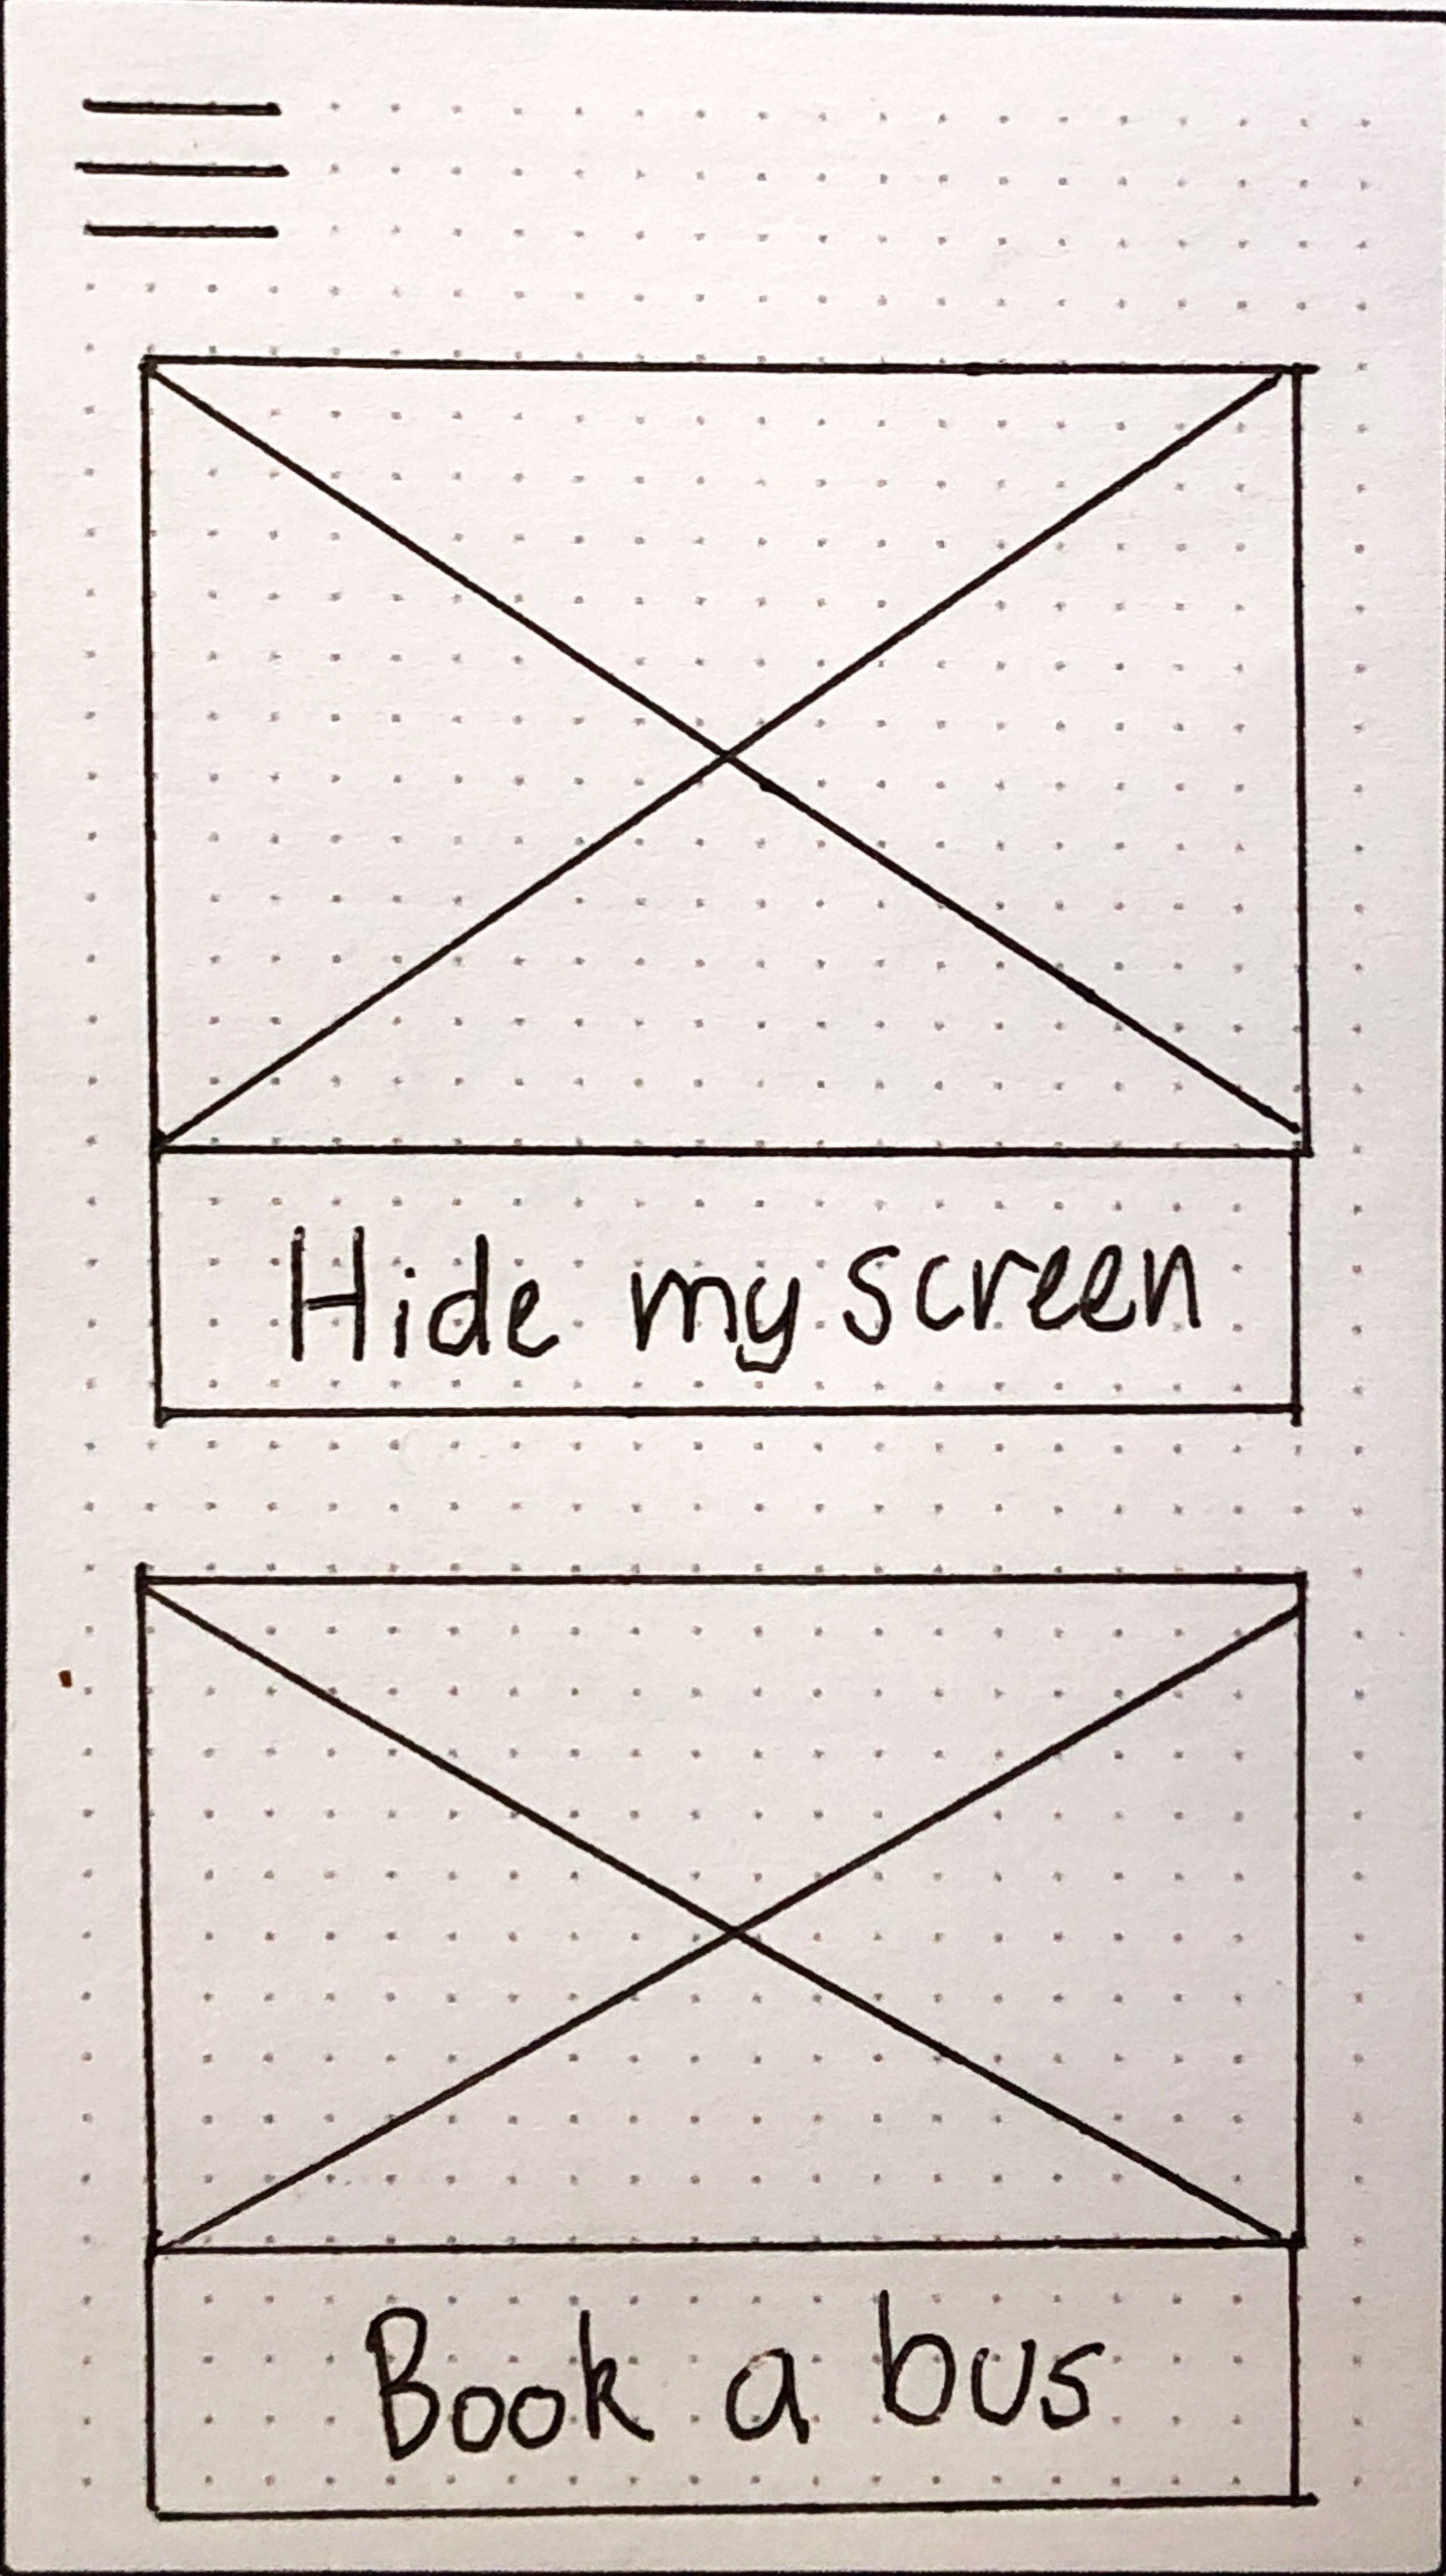 Hide my screen
Book a bus